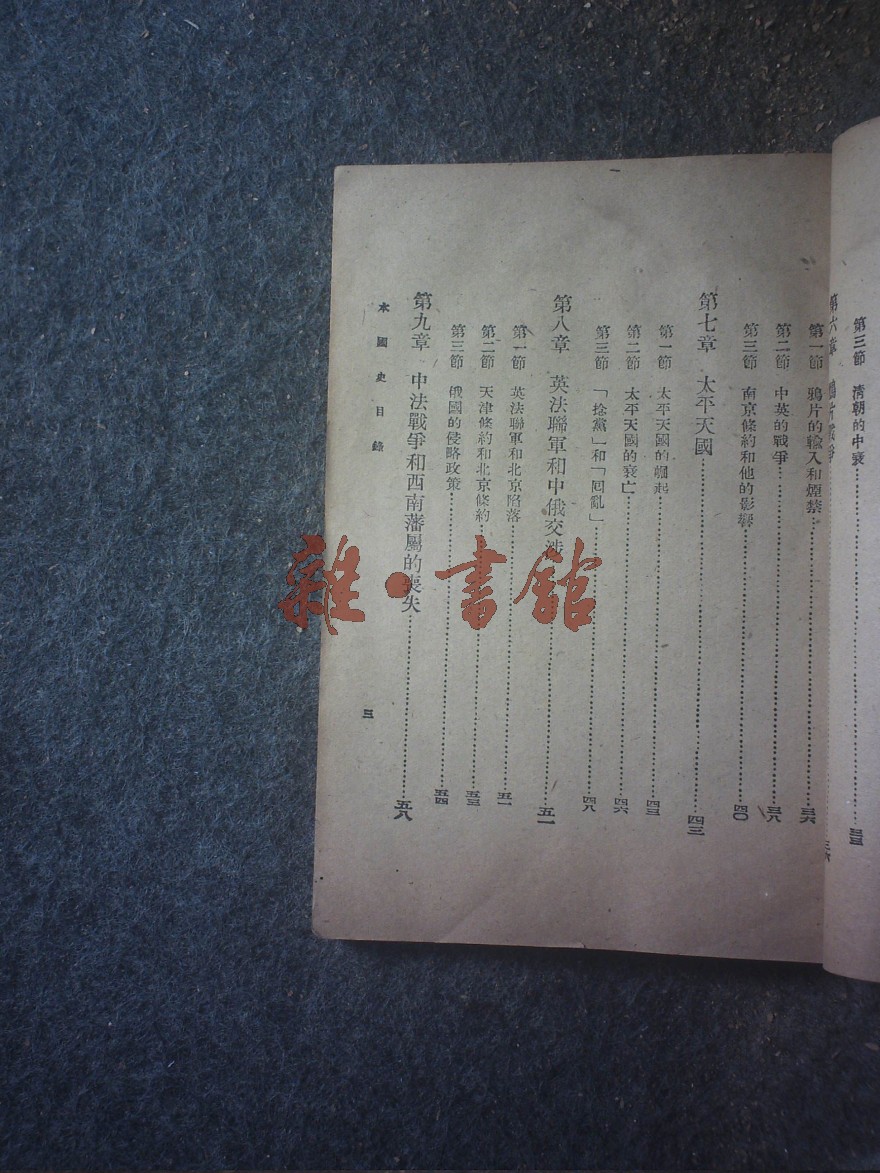 第三節 清朝的中衰……三三
第六章 鴉片戰爭……三六
第一節 鴉片的輸入和煙禁……三六
第二節 中英的戰爭……三八
第三節 南京條約和他的影響……四〇
第七章 太平天國……四三
第一節 太平天國的崛起……四三
第二節 太平天國的衰亡……四六
第三節 「捻黨」和「回亂」……四八
第八章 英法聯軍和中俄交涉……五一
第一節 英法聯軍和北京陷落……五一
第二節 天津條約和北京條約……五三
第三節 俄國的侵略政策……五四
第九章 中法戰爭和西南藩屬的喪失……五八
本國史目錄 三
雜·書館